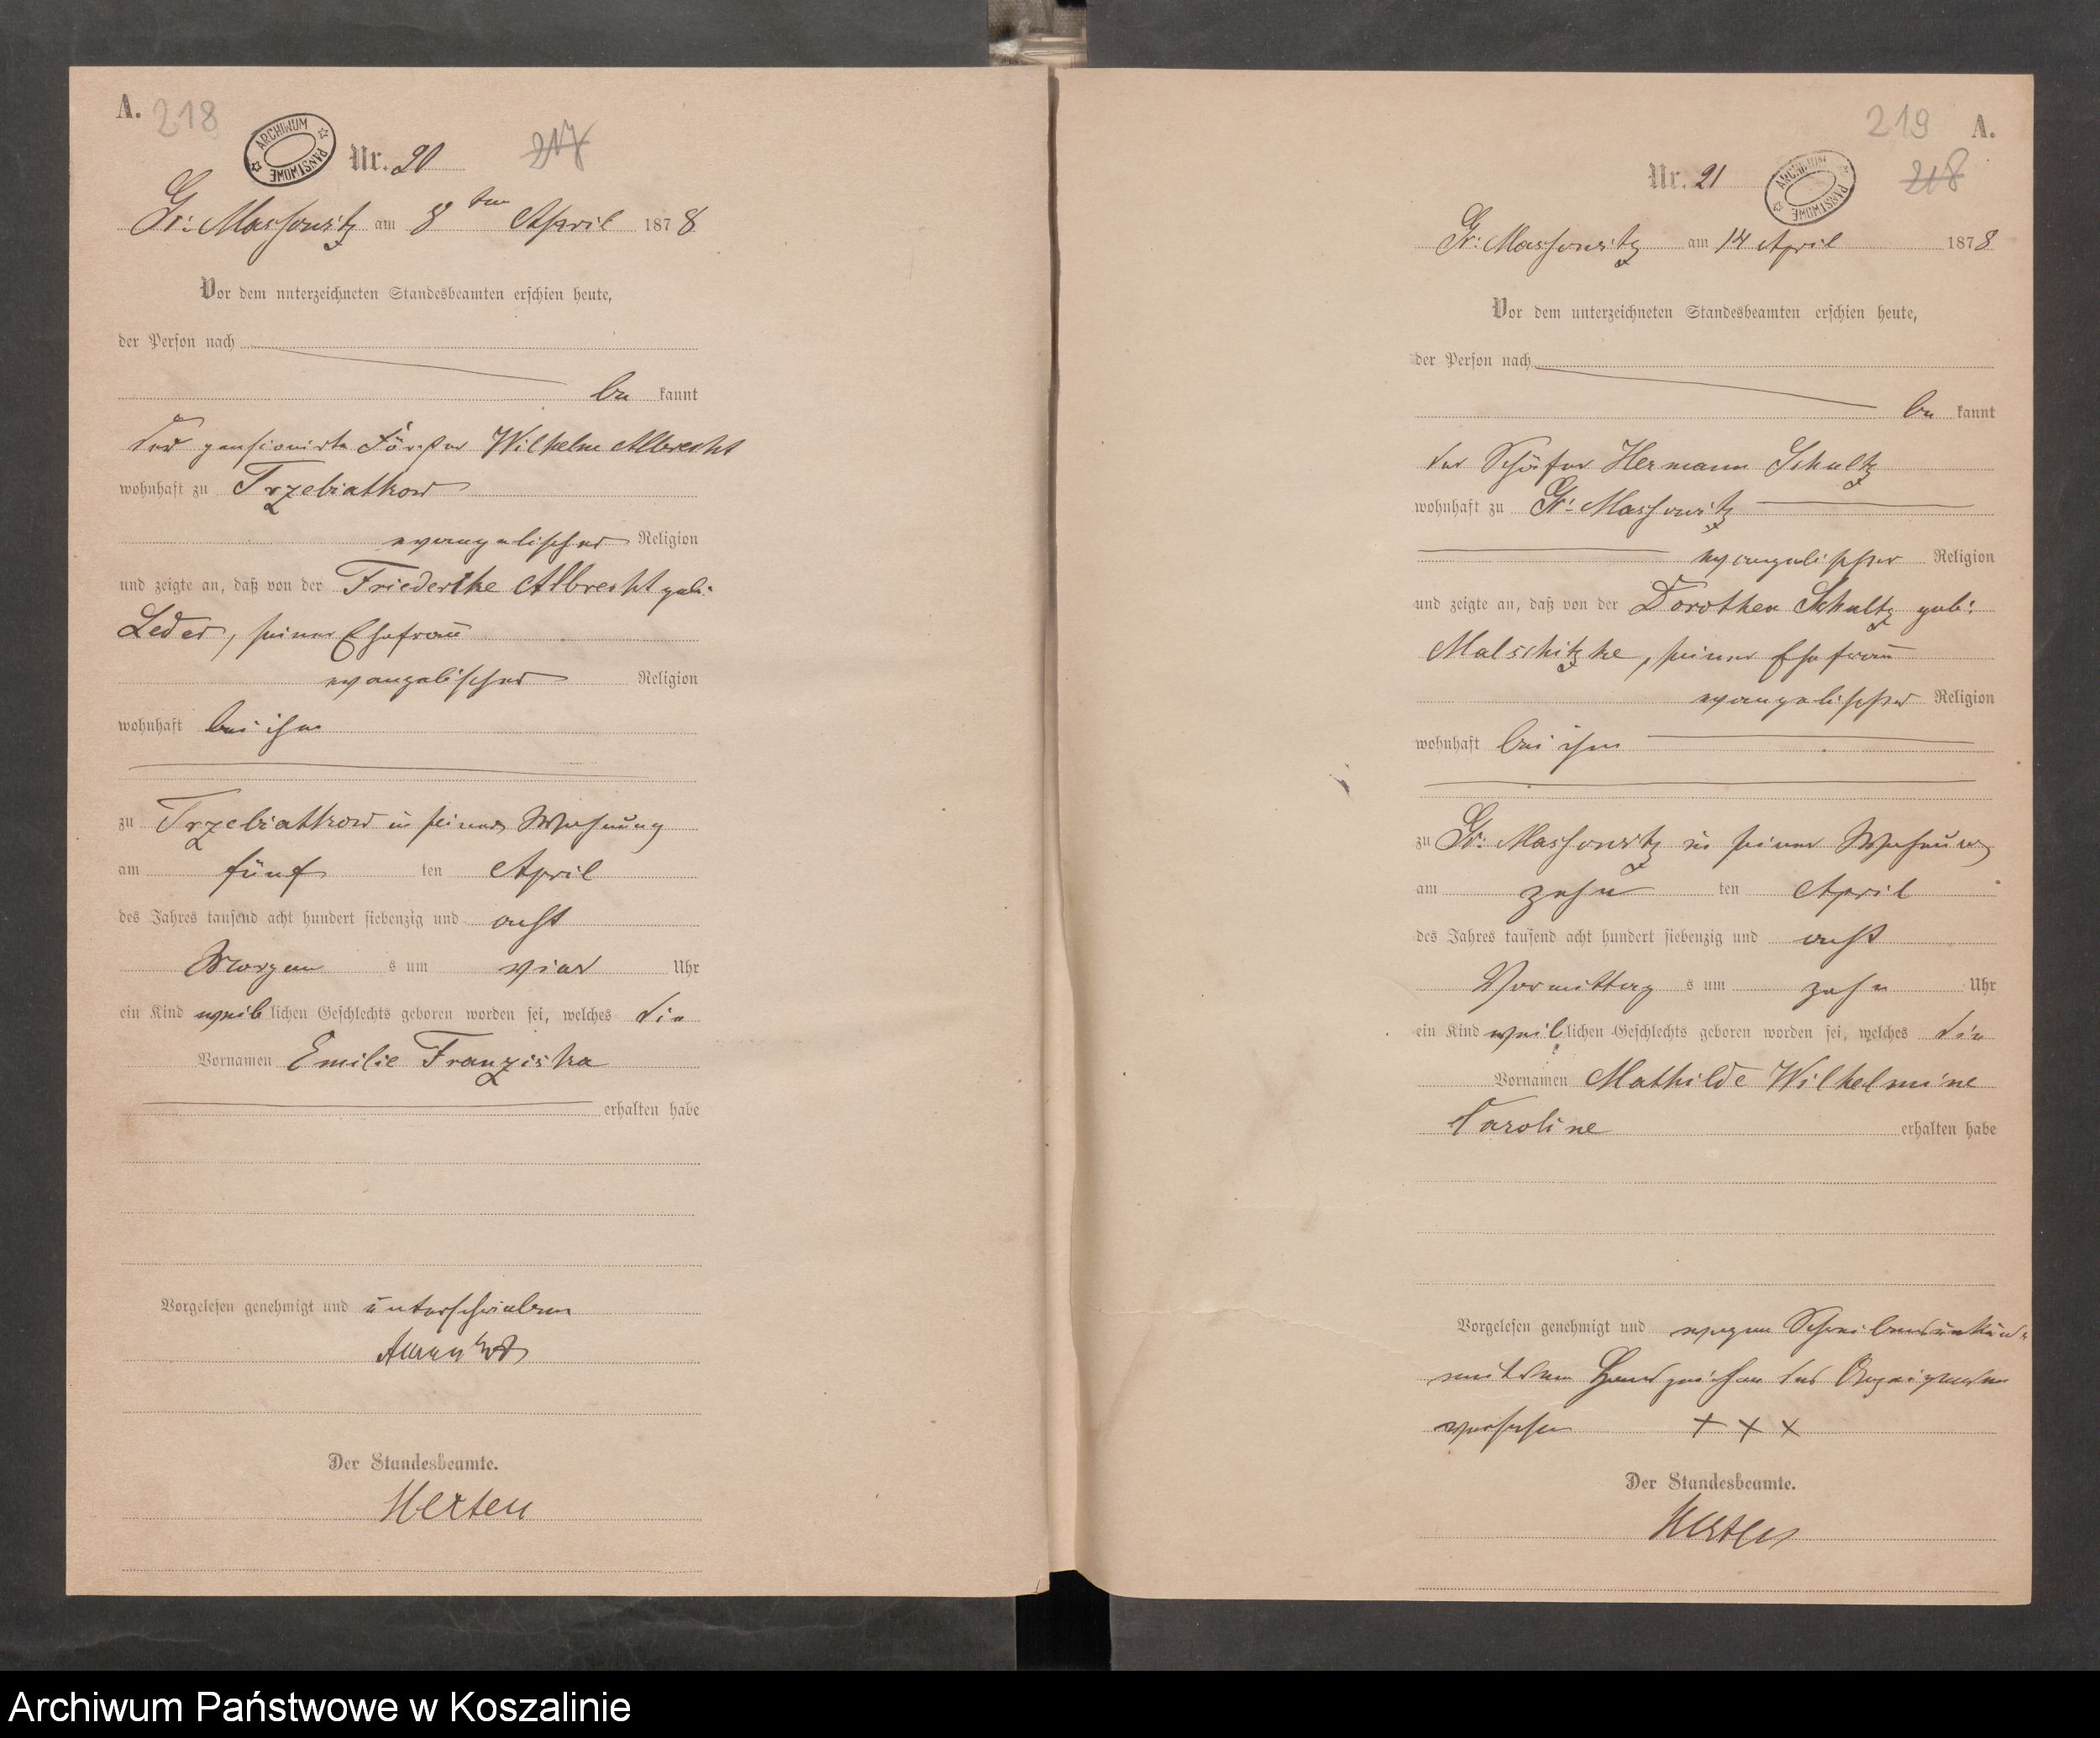 A. 218
ARCHIWUM PAŃSTWOWE
Nr. 20 217
Gr: Massowitz am 8ten April 1878
Vor dem unterzeichneten Standesbeamten erschien heute,
der Person nach
be kannt
der pensionirte Förster Wilhelm Albrecht
wohnhaft zu Trzebiatkow
evangelischer Religion
und zeigte an, daß von der Friederike Albrecht geb:
Leder, seiner Ehefrau
evangelischer Religion
wohnhaft bei ihm
zu Trzebiatkow in seiner Wohnung
am fünf ten April
des Jahres tausend acht hundert siebenzig und acht
Morgen s um vier Uhr
ein Kind weib lichen Geschlechts geboren worden sei, welches die
Vornamen Emilie Franziska
erhalten habe
Vorgelesen genehmigt und unterschrieben
Der Standesbeamte.
Merten
219 A.
Nr. 21 218
ARCHIWUM PAŃSTWOWE
Gr: Massowitz am 14 April 1878
Vor dem unterzeichneten Standesbeamten erschien heute,
der Person nach
be kannt
der Schäfer Hermann Schultz
wohnhaft zu Gr: Massowitz
evangelischer Religion
und zeigte an, daß von der Dorothea Schultz geb:
Malschitzke, seiner Ehefrau
evangelischer Religion
wohnhaft bei ihm
zu Gr: Massowitz in seiner Wohnung
am zehn ten April
des Jahres tausend acht hundert siebenzig und acht
Vormittag s um zehn Uhr
ein Kind weib lichen Geschlechts geboren worden sei, welches die
Vornamen Mathilde Wilhelmine
Caroline erhalten habe
Vorgelesen genehmigt und wegen
mit dem Handzeichen des Anzeigenden
versehen + + +
Der Standesbeamte.
Merten
Archiwum Państwowe w Koszalinie